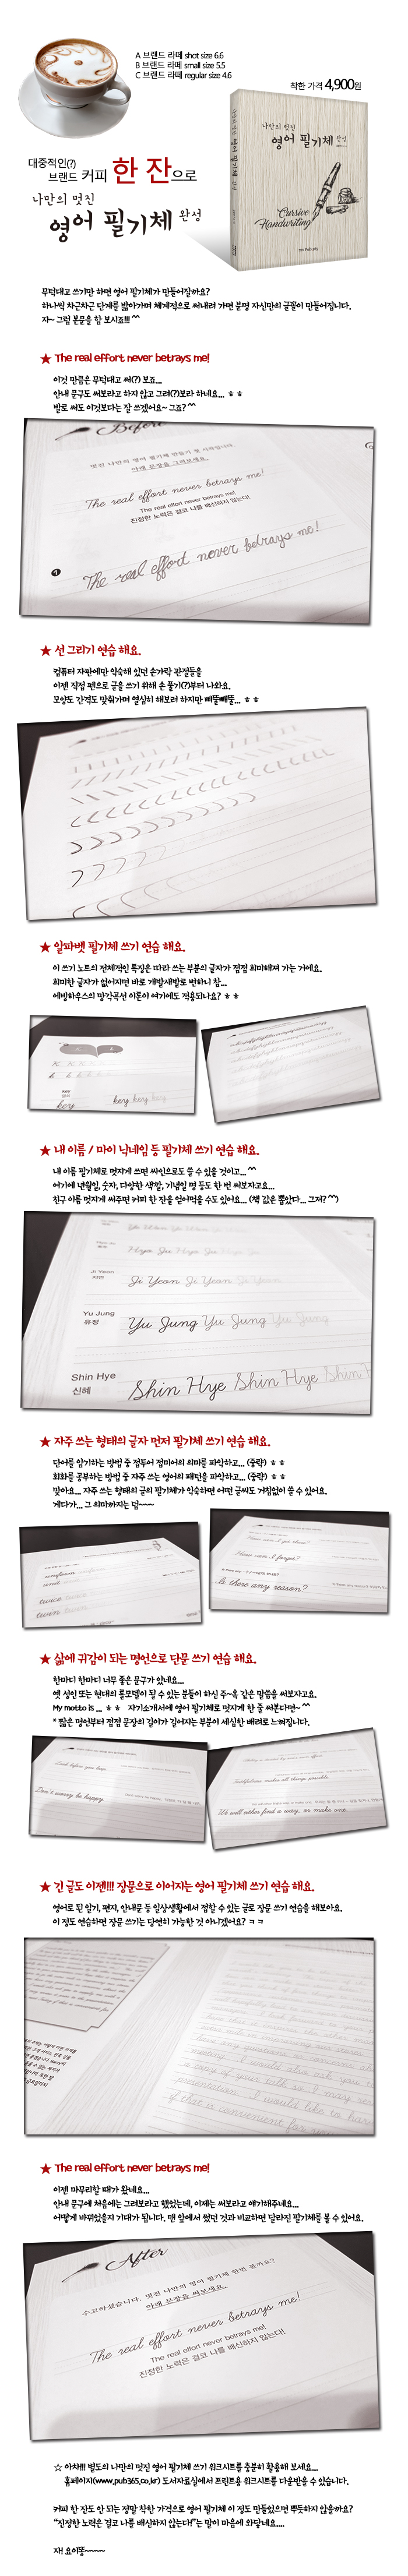 A 브랜드 라떼 shot size 6.6
B 브랜드 라떼 small size 5.5
C 브랜드 라떼 regular size 4.6
착한 가격 4,900원
대중적인(?)
브랜드 커피 한 잔으로
나만의 멋진
영어 필기체 완성
나만의 멋진
영어 필기체 완성
Cursive
Handwriting
무턱대고 쓰기만 하면 영어 필기체가 만들어질까요?
하나씩 차근차근 단계를 밟아가며 체계적으로 써내려 가면 분명 자신만의 글꼴이 만들어집니다.
자~ 그럼 본문을 함 보시죠!!! ^^
★ The real effort never betrays me!
이것 만큼은 무턱대고 써(?) 보죠...
안내 문구도 써보라고 하지 않고 그려(?)보라 하네요... ㅎㅎ
발로 써도 이것보다는 잘 쓰겠어요~ 그죠? ^^
Before
멋진 나만의 영어 필기체 만들기 첫 시작입니다.
아래 문장을 그려보세요.
The real effort never betrays me!
The real effort never betrays me!
진정한 노력은 결코 나를 배신하지 않는다!
The real effort never betrays me!
★ 선 그리기 연습 해요.
컴퓨터 자판에만 익숙해 있던 손가락 관절들을
이젠 직접 펜으로 글을 쓰기 위해 손 풀기(?)부터 나와요.
모양도 간격도 맞춰가며 열심히 해보려 하지만 삐뚤빼뚤... ㅎㅎ
★ 알파벳 필기체 쓰기 연습 해요.
이 쓰기 노트의 전체적인 특징은 따라 쓰는 부분의 글자가 점점 희미해져 가는 거예요.
희미한 글자가 없어지면 바로 개발새발로 변하니 참...
에빙하우스의 망각곡선 이론이 여기에도 적용되나요? ㅎㅎ
key
key key key
★ 내 이름 / 마이 닉네임 등 필기체 쓰기 연습 해요.
내 이름 필기체로 멋지게 쓰면 싸인으로도 쓸 수 있을 것이고... ^^
여기에 년월일, 숫자, 다양한 색깔, 기념일 명 등도 한 번 써보자고요...
친구 이름 멋지게 써주면 커피 한 잔을 얻어먹을 수도 있어요... (책 값은 뽑았다... 그져? ^^)
Ji Yeon
지연
Ji Yeon Ji Yeon Ji Yeon
Yu Jung
유정
Yu Jung Yu Jung Yu Jung
Shin Hye
신혜
Shin Hye Shin Hye Shin H
★ 자주 쓰는 형태의 글자 먼저 필기체 쓰기 연습 해요.
단어를 암기하는 방법 중 접두어 접미어의 의미를 파악하고... (중략) ㅎㅎ
회화를 공부하는 방법 중 자주 쓰는 영어의 패턴을 파악하고... (중략) ㅎㅎ
맞아요... 자주 쓰는 형태의 글의 필기체가 익숙하면 어떤 글씨도 거침없이 쓸 수 있어요.
게다가... 그 의미까지는 덤~~~
uniform
twice
twin
How can I get there?
How can I forget?
Is there any reason?
★ 삶에 귀감이 되는 명언으로 단문 쓰기 연습 해요.
한마디 한마디 너무 좋은 문구가 있네요...
옛 성인 또는 현대의 롤모델이 될 수 있는 분들이 하신 주~옥 같은 말씀을 써보자고요.
My motto is ... ㅎㅎ 자기소개서에 영어 필기체로 멋지게 한 줄 써본다면~ ^^
* 짧은 명언부터 점점 문장의 길이가 길어지는 부분이 세심한 배려로 느껴집니다.
Look before you leap.
Don't worry be happy.
Faithfulness makes all things possible.
We will either find a way, or make one.
★ 긴 글도 이젠!!! 장문으로 이어지는 영어 필기체 쓰기 연습 해요.
영어로 된 일기, 편지, 안내문 등 일상생활에서 접할 수 있는 글로 장문 쓰기 연습을 해보아요.
이 정도 연습하면 장문 쓰기는 당연히 가능한 것 아니겠어요? ㅋㅋ
★ The real effort never betrays me!
이젠 마무리할 때가 왔네요...
안내 문구에 처음에는 그려보라고 했었는데, 이제는 써보라고 얘기해주네요...
어떻게 바뀌었을지 기대가 됩니다. 맨 앞에서 썼던 것과 비교하면 달라진 필기체를 볼 수 있어요.
After
수고하셨습니다. 멋진 나만의 영어 필기체 한번 쓸까요?
아래 문장을 써보세요.
The real effort never betrays me!
The real effort never betrays me!
진정한 노력은 결코 나를 배신하지 않는다!
☆ 아차!!! 별도의 나만의 멋진 영어 필기체 쓰기 워크시트를 충분히 활용해 보세요....
홈페이지(www.pub365.co.kr) 도서자료실에서 프린트용 워크시트를 다운받을 수 있습니다.
커피 한 잔도 안 되는 정말 착한 가격으로 영어 필기체 이 정도 만들었으면 뿌듯하지 않을까요?
"진정한 노력은 결코 나를 배신하지 않는다!"는 말이 마음에 와닿네요....
자! 요이똥~~~~